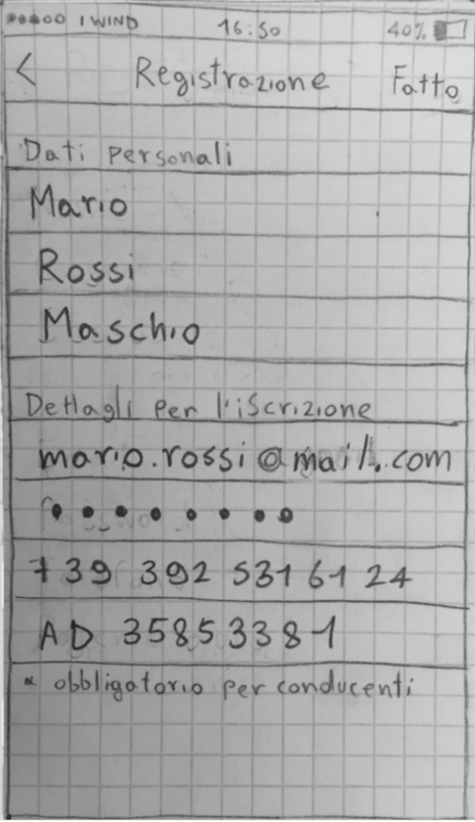 I WIND 16:50 40%
< Registrazione Fatto
Dati personali
Mario
Rossi
Maschio
Dettagli per l'iscrizione
mario.rossi@mail.com
••••••••
+39 392 5316124
AD 3585338-1
* obbligatorio per conducenti